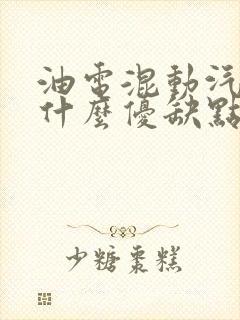 油電混動汽
什麼優缺點
少糖棗糕